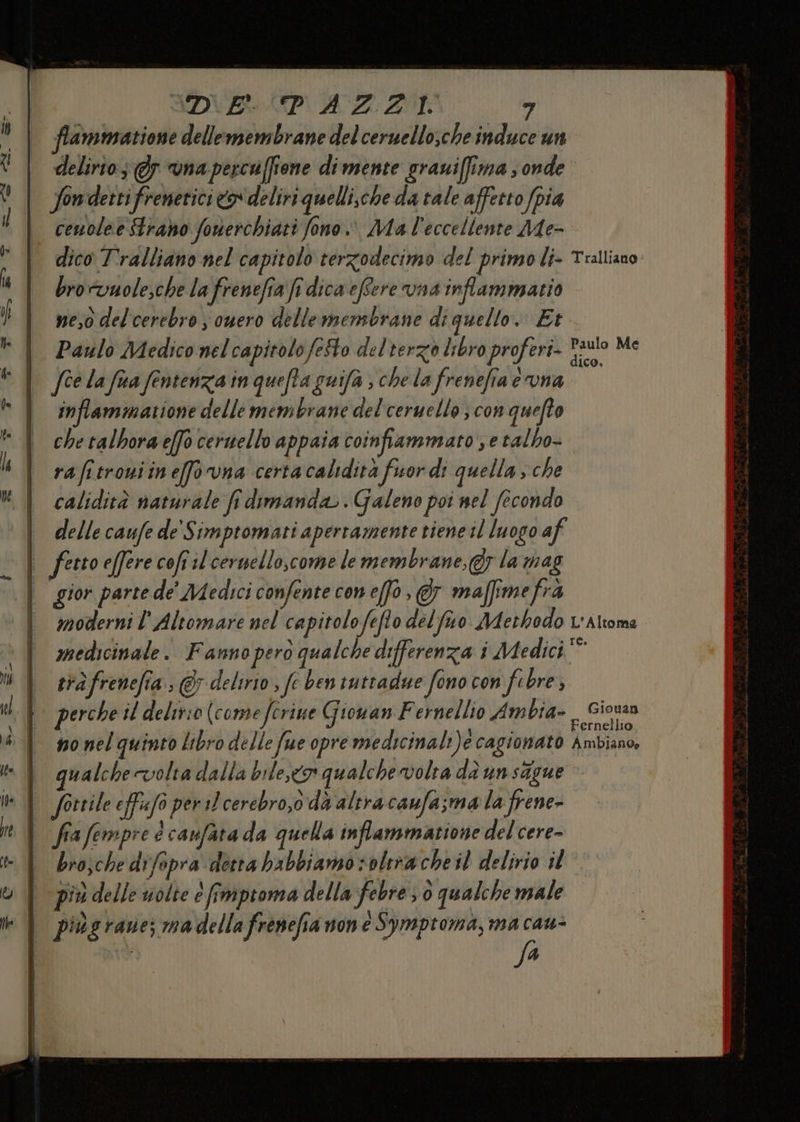 DE' PAZZI. 7
fiammatione delle membrane del ceruello, che induce un
delirio; & vna percussione di mente grauissima, onde
son detti frenetici & deliri quelli, che da tale affetto spia
ceuole e strano souerchiati sono. Ma l'eccellente Me-
dico Tralliano nel capitolo terzodecimo del primo li-
Tralliano
bro vuole, che la frenesia si dica essere vna inflammatio
ne, ò del cerebro, ouero delle membrane di quello. Et
Paulo Medico nel capitolo sesto del terzo libro proferi-
Paulo Me
dico.
sce la sua sentenza in questa guisa, che la frenesia è vna
inflammatione delle membrane del ceruello, con questo
che talhora esso ceruello appaia coinfiammato, e talho-
ra si troui in esso vna certa calidità fuor di quella, che
calidità naturale si dimanda. Galeno poi nel secondo
delle cause de' Simptomati apertamente tiene il luogo af
fetto essere cosi il ceruello, come le membrane, & la mag
gior parte de' Medici consente con esso, & massime frà
moderni l'Altomare nel capitolo sesto del suo Methodo
L'Altoma
re.
medicinale. Fanno però qualche differenza i Medici
trà frenesia, & delirio, se ben tuttadue sono con febre,
perche il delirio (come scriue Giouan Fernellio Ambia-
Giouan
Fernellio
Ambiano.
no nel quinto libro delle sue opre medicinali) è cagionato
qualche volta dalla bile, & qualche volta dà un sãgue
sottile effuso per il cerebro, ò da altra causa; ma la frene-
sia sempre è causata da quella inflammatione del cere-
bro, che di sopra detta habbiamo: oltra che il delirio il
più delle uolte è simptoma della febre, ò qualche male
più graue; ma della frenesia non è Symptoma, ma cau-
sa